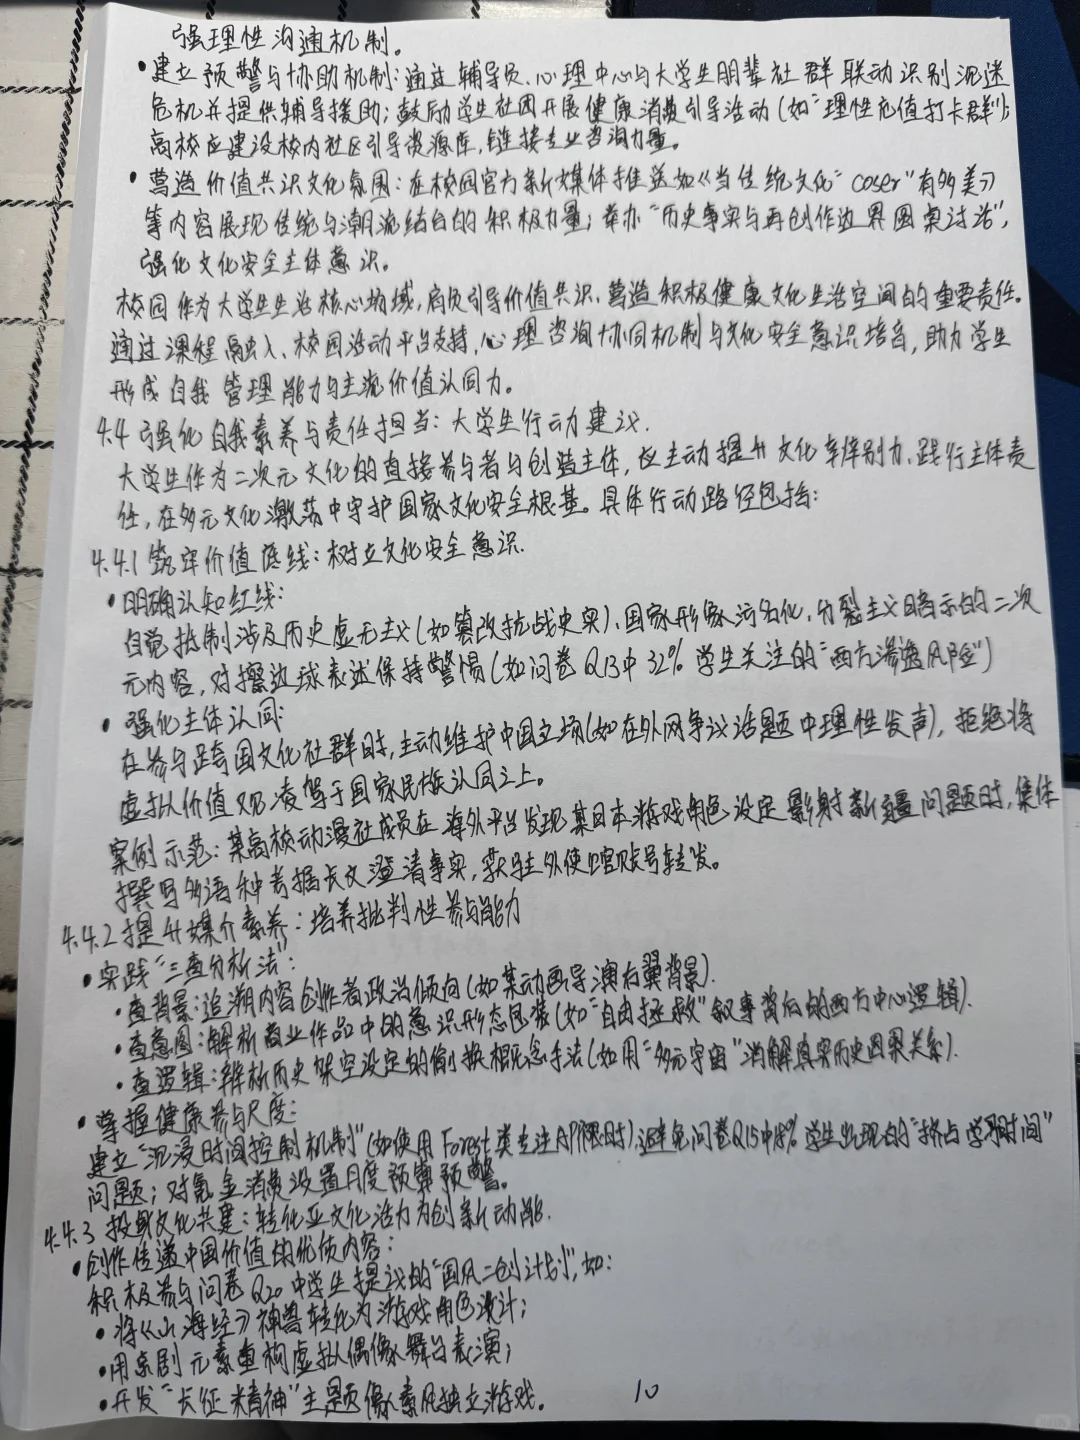 强理性沟通机制。
•建立预警与协助机制:通过辅导员、心理中心与大学生朋辈社群联动识别沉迷
危机并提供辅导援助;鼓励学生社团开展健康消费引导活动(如"理性充值打卡群");
高校应建设校内社区引导资源库,链接专业咨询力量。
•营造价值共识文化氛围:在校园官方新媒体推送如《当传统文化"coser"有多美》
等内容展现传统与潮流结合的积极力量;举办"历史事实与再创作边界圆桌讨论",
强化文化安全主体意识。
校园作为大学生生活核心场域,肩负引导价值共识、营造积极健康文化生活空间的重要责任。
通过课程融入、校园活动平台支持、心理咨询协同机制与文化安全意识培育,助力学生
形成自我管理能力与主流价值认同力。
4.4 强化自我素养与责任担当:大学生行动建议.
大学生作为二次元文化的直接参与者与创造主体,应主动提升文化辨别力、践行主体责
任,在多元文化激荡中守护国家文化安全根基。具体行动路径包括:
4.4.1 筑牢价值底线:树立文化安全意识.
•明确认知红线:
自觉抵制涉及历史虚无主义(如篡改抗战史实)、国家形象污名化、分裂主义暗示的二次
元内容,对擦边球表述保持警惕(如问卷Q13中32%学生关注的"西方渗透风险")
•强化主体认同:
在参与跨国文化社群时,主动维护中国立场(如在外网争议话题中理性发声),拒绝将
虚拟价值观凌驾于国家民族认同之上。
案例示范:某高校动漫社成员在海外平台发现某日本游戏角色设定影射新疆问题时,集体
撰写多语种考据长文澄清事实,获驻外使馆账号转发。
4.4.2 提升媒介素养:培养批判性参与能力
•实践"三查分析法":
•查背景:追溯内容创作者政治倾向(如某动画导演右翼背景).
•查意图:解析商业作品中的意识形态包装(如"自由拯救"叙事背后的西方中心逻辑).
•查逻辑:辨析历史架空设定的偷换概念手法(如用"多元宇宙"消解真实历史因果关系).
•掌握健康参与尺度:
建立"沉浸时间控制机制"(如使用Forest类专注APP限时),避免问卷Q15中18%学生出现的"挤占学习时间"
问题;对氪金消费设置月度预算预警。
4.4.3 投身文化共建:转化亚文化活力为创新动能.
•创作传递中国价值的优质内容:
积极参与问卷Q20中学生提议的"国风二创计划",如:
•将《山海经》神兽转化为游戏角色设计;
•用京剧元素重构虚拟偶像舞台表演;
•开发"长征精神"主题像素风独立游戏。
10